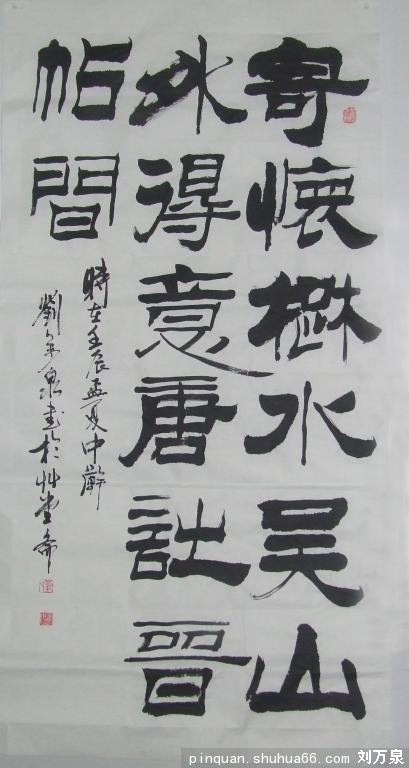 寄懷楚水吳山
外得意唐詩晉
帖間
時在壬辰孟夏中澣
劉万泉書於艸堂
pinquan.shuhua66.com 刘万泉